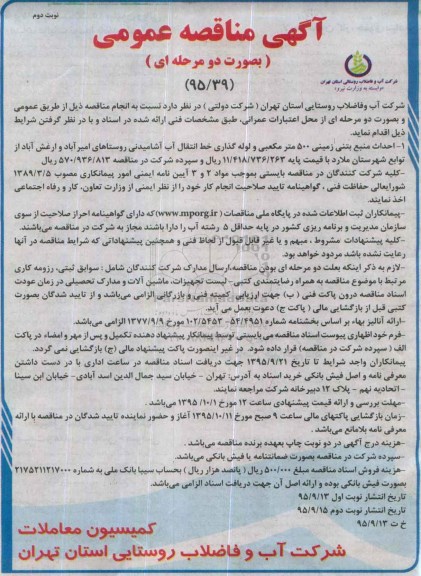 نوبت دوم
آگهی مناقصه عمومی
( بصورت دو مرحله ای )
(۹۵/۳۹)
شرکت آب و فاضلاب روستایی استان تهران
وابسته به وزارت نیرو
شرکت آب وفاضلاب روستایی استان تهران ( شرکت دولتی ) در نظر دارد نسبت به انجام مناقصه ذیل از طریق عمومی
و بصورت دو مرحله ای از محل اعتبارات عمرانی، طبق مشخصات فنی ارائه شده در اسناد و با در نظر گرفتن شرایط
ذیل اقدام نماید.
۱-احداث منبع بتنی زمینی ۵۰۰ متر مکعبی و لوله گذاری خط انتقال آب آشامیدنی روستاهای امیر آباد و ارغش آباد از
توابع شهرستان ملارد با قیمت پایه ۱۱/۴۱۸/۷۳۶/۲۶۳ ریال و سپرده شرکت در مناقصه ۵۷۰/۹۳۶/۸۱۳ ریال.
-کلیه شرکت کنندگان در مناقصه بایستی بموجب مواد ۲ و ۳ آیین نامه ایمنی امور پیمانکاری مصوب ۱۳۸۹/۳/۵
شورایعالی حفاظت فنی ، گواهینامه تایید صلاحیت انجام کار خود را از نظر ایمنی از وزارت تعاون، کار و رفاه اجتماعی
اخذ نمایند.
-پیمانکاران ثبت اطلاعات شده در پایگاه ملی مناقصات ( www.mporg.ir)که دارای گواهینامه احراز صلاحیت از سوی
سازمان مدیریت و برنامه ریزی کشور در پایه حداقل ۵ رشته آب را دارا باشند مجاز به شرکت در مناقصه می‌باشند.
-کلیه پیشنهادات مشروط ، مبهم و یا غیر قابل قبول از لحاظ فنی و همچنین پیشنهاداتی که شرایط مناقصه در آنها
رعایت نشده باشد مردود خواهد بود.
-لازم به ذکر اینکه بعلت دو مرحله ای بودن مناقصه،ارسال مدارک شرکت کنندگان شامل : سوابق ثبتی، رزومه کاری
مرتبط با موضوع مناقصه به همراه رضایتمندی کتبی- لیست تجهیزات، ماشین آلات و مدارک تحصیلی در زمان عودت
اسناد مناقصه درون پاکت فنی ( ب) جهت ارزیابی توسط کمیته فنی و بازرگانی الزامی می‌باشد و از تایید شدگان بصورت
کتبی قبل از بازگشایی مالی ( پاکت ج) دعوت بعمل می آید.
-ارائه آنالیز بهاء بر اساس بخشنامه شماره ۱۰۲/۵۴۵۳-۵۴/۴۹۵۱ مورخ ۱۳۷۷/۹/۹ الزامی می‌باشد.
-فرم خوداظهاری پیوست اسناد مناقصه می بایستی توسط پیمانکار پیشنهاد دهنده تکمیل و پس از مهر و امضاء در پاکت
الف ( سپرده شرکت در مناقصه) قرار داده شود. در غیر اینصورت پاکت پیشنهاد مالی (ج) بازگشایی نمی گردد.
پیمانکاران واجد شرایط تا تاریخ ۱۳۹۵/۹/۲۱ جهت دریافت اسناد مناقصه در ساعت اداری با در دست داشتن
معرفی نامه و اصل فیش بانکی خرید اسناد به آدرس: تهران - خیابان سید جمال الدین اسد آبادی- خیابان ابن سینا
-اتحادیه نهم - پلاک ۱۲ دبیرخانه شرکت مراجعه نمایند.
-مهلت بررسی و ارائه قیمت پیشنهادی ساعت ۱۲ مورخ ۱۳۹۵/۱۰/۱ می باشد.
-زمان بازگشایی پاکتهای مالی ساعت ۹ صبح مورخ ۱۳۹۵/۱۰/۱۱ آغاز و حضور نماینده تایید شدگان در مناقصه با ارائه
معرفی نامه بلامانع می‌باشد .
-هزینه درج آگهی در دو نوبت چاپ بعهده برنده مناقصه می‌باشد .
-سپرده شرکت در مناقصه بصورت ضمانتنامه یا فیش بانکی می‌باشد.
-هزینه فروش اسناد مناقصه مبلغ ۵۰۰/۰۰۰ ریال ( پانصد هزار ریال ) بحساب سیبا بانک ملی به شماره ۲۱۷۵۲۱۱۲۱۷۰۰۰
بصورت فیش بانکی بوده و ارائه اصل آن جهت دریافت اسناد الزامی می‌باشد.
تاریخ انتشار نوبت اول ۹۵/۹/۱۳
تاریخ انتشار نوبت دوم ۹۵/۹/۱۵
خ ت ۹۵/۹/۱۳
کمیسیون معاملات
شرکت آب و فاضلاب روستایی استان تهران